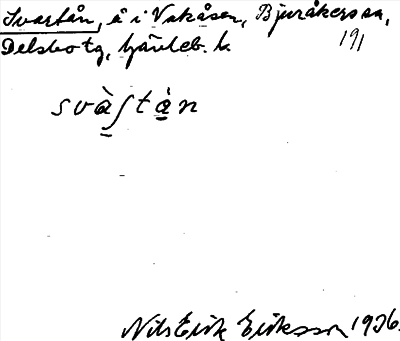 Svartån, å i Vakåsen, Bjuråkers sn,
Delsbo tg, Gävleb. l.
191
svàʃtȧn
Nils Erik Eriksson 1936.